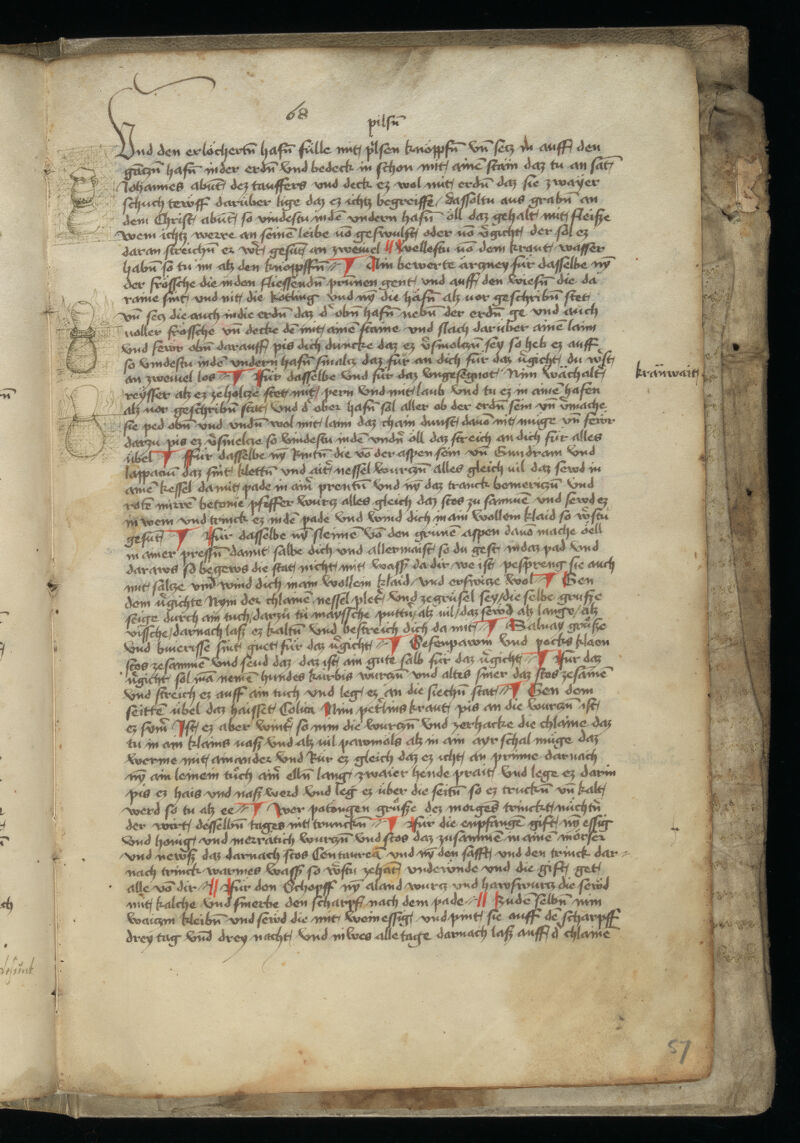 68
pilsn̄
Vnd den erlöchertn̄ hafn̄ fülle mit pilsen knoppfn̄ vn̄ secz in auff den
gāczn̄ hafn̄ inder erdn̄ vnd bedeck in schon mit ainē stain daz tu an sāt
Johannes abūt dez tauffers vnd deck ez wol mit erdn̄ daz sie zwayer
schuch teröff darüber lige daz ez ichtz begreiffe / dasselb tu aus grabn̄ an
dem Christ abūt so vindestu indē vndern hafn̄ öll daz gehalt mit fleisse
wem ichtz werre an seinē leibe vō geswulst oder vō v̄gicht der sol ez
daran streichn̄ er wt̄ gesūt an zweiuel // Wellestu vō dem kraut wasser
habn̄ so tu im alz den knoppffn̄ ¶ Ain bewerte ärczney für dasselbe nȳ
der frössche die inden fliessendn̄ prünnen gent vnd auff den wiesn̄ die da
raine sint vnd nit die kotling vnd nȳ die häfn̄ alz uor geschribn̄ stet
vn̄ secz die auch indie erdn̄ daz d' obn̄ hafn̄ nebn̄ der erdn̄ ge vnd auch
uoller frössche vn̄ decke dē mit ainē staine vnd slach darüber ainē laim
vnd fewr obn̄ darauff pis dich duncke daz ez v̄smolczn̄ sey so heb ez auff
so vindestu indē vndern hafn̄ smalcz daz für an dich für daz v̄gicht du wst̄
an zweiuel los ¶ Für dasselbe vnd für daz vngesegnot Nim wächalt'
kranwait
reysser alz ez zeholcze stet mit pern vnd mit laub vnd tu ez in ainē hafen
alz uor geschribn̄ stat vnd d' ober hafn̄ sol aller ob der erdn̄ sein vn̄ vmache
sie ped obn̄ vnd vndn̄ wol mit laim daz chain dunst dauō nit müge vn̄ fewr
darzu pis ez v̄smelcze so vindestu indē vndn̄ öll daz streich an dich für alles
übel ¶ Für dasselbe nȳ Rintn̄ die vō der aspen sein vn̄ Gundram vnd
lappaciū daz sint klettn̄ vnd ait' nessel wurczn̄ alles gleich vil daz sewd in
ainē kessel da mit pade in ain' prentn̄ vnd nȳ daz tranck bemerczn̄ vnd
rote mirrē betonie pfeffer wurcz alles gleich daz stos zu samuē vnd sewd ez
in wein vnd trinck ez indē pade vnd wind dich in ain wollein klaid so wstu
gesūt ¶ Für dasselbe nȳ sleinē vō den grünē aspen dauō mache oell
in ainer pressn̄ damit salbe dich vnd allermaist so du gest indaz pad vnd
daraws so begews die stat nicht mit wassr̄ da dir we ist pespreng sie auch
mit salcze vnd wind dich in ain wollein klaid / vnd erswicze wol ¶ Gen
dem v̄gichte Nym der chlainē nessel plet' vnd zegrüsel sey / die selbe grusse
seuge durch ain tuch / darczu tu maysche puttn̄ alz vil / daz sewd alz lange / alz
vissche / darnach lass ez kaltn̄ vnd bestreich dich da mit ¶ Saluay grüsse
vnd biuerisse sint guet für daz v̄gicht ¶ Eesenpawm vnd pocks klaen
stos zesammē vnd seud daz daz ist ain gute salb für daz v̄gicht ¶ Für daz
v̄gicht sol mā nemē hundes kürbis wurczn̄ vnd altes smer daz stos zesamē
vnd streich ez auff ain tuch vnd leg ez an die siechn̄ stat ¶ Gen dem
seittē übel daz haisset Colica Nim petlins kraut pis an die wurczn̄ ist
ez sum' Ist ez aber wint' so nim die wurczn̄ vnd zerhacke die chlaine daz
tu in ain klains vass vnd alz vil pawmöls alz in ain ayr schal müge daz
werme mit ainander vnd Rür ez gleich daz ez icht an prinne darnach
nȳ ain leinem tuch ain' elln̄ lang zwaier hende prait vnd lege ez darin
pis ez hais vnd nass werd vnd leg ez über die seitn̄ so ez truckn̄ vn̄ kalt
werd so tu alz ee ¶ Wer patongen grüsse dez morges trinckt nüchtn̄
der wirt desselbn̄ tages nit trunckn̄ ¶ Für die enpfangē gift nȳ essig
vnd honig vnd merratich wurczn̄ vnd stos daz zusammē in ainē morser
vnd newss daz darnach stos Centaurea vnd nȳ den safft vnd den trinck dar-
nach trinck warmes wassr̄ so wstu zehāt vndewnde vnd die gift get
alle vō dir // Für den Schopff nȳ aland wurcz vnd hawswurcz die sewd
mit kalche vnd smirbe den scharpff nach dem pade // Zudē selbn̄ nim
waiczin kleibn̄ vnd sewd die mit weinessig vnd pint sie auff dē scharpff
drey tag vnd drey nacht vnd niwes alle tage darnach lass auff d' chlaine
57